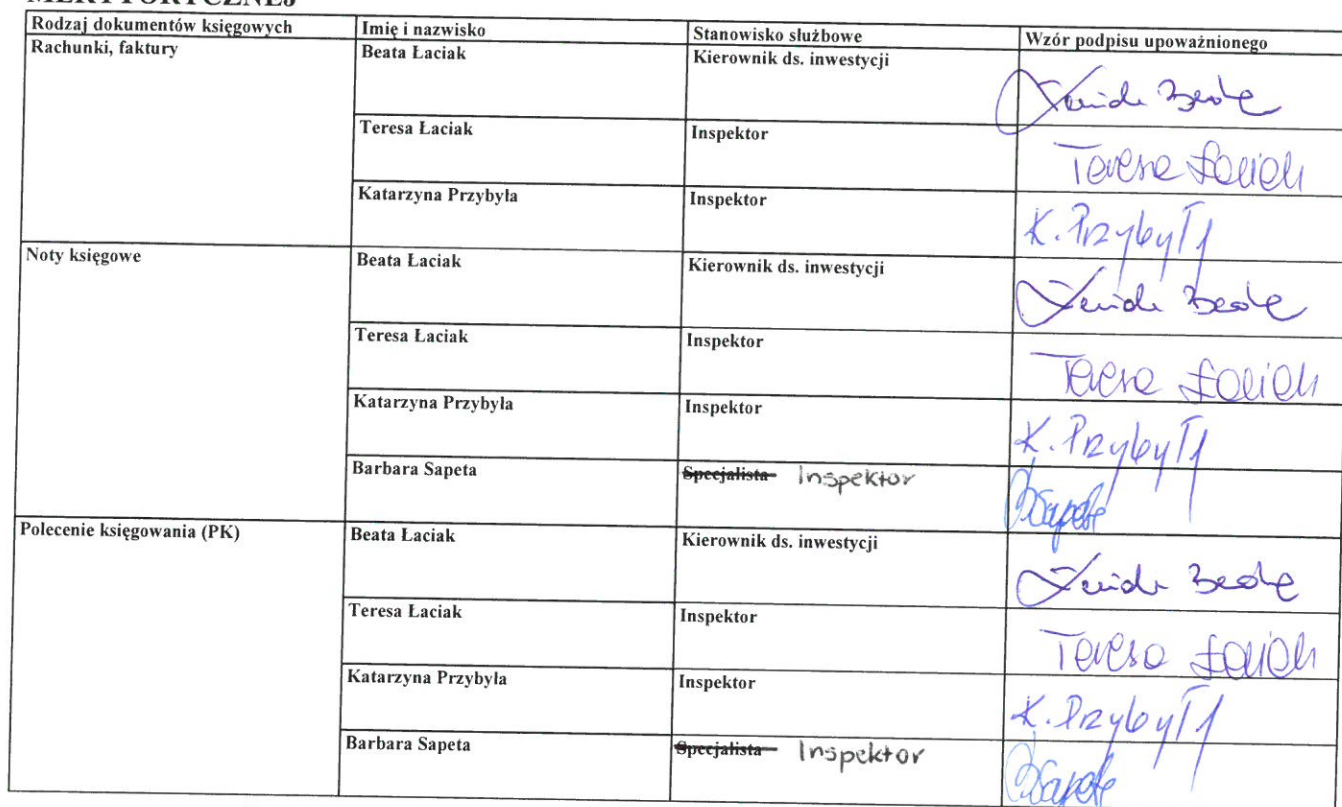 MERYTORYCZNEJ
Rodzaj dokumentów księgowych Imię i nazwisko Stanowisko służbowe Wzór podpisu upoważnionego
Rachunki, faktury Beata Łaciak Kierownik ds. inwestycji
Teresa Łaciak Inspektor Teresa Łaciak
Katarzyna Przybyła Inspektor K. Przybyła
Noty księgowe Beata Łaciak Kierownik ds. inwestycji
Teresa Łaciak Inspektor Teresa Łaciak
Katarzyna Przybyła Inspektor K. Przybyła
Barbara Sapeta Specjalista Inspektor BSapeta
Polecenie księgowania (PK) Beata Łaciak Kierownik ds. inwestycji
Teresa Łaciak Inspektor Teresa Łaciak
Katarzyna Przybyła Inspektor K. Przybyła
Barbara Sapeta Specjalista Inspektor BSapeta